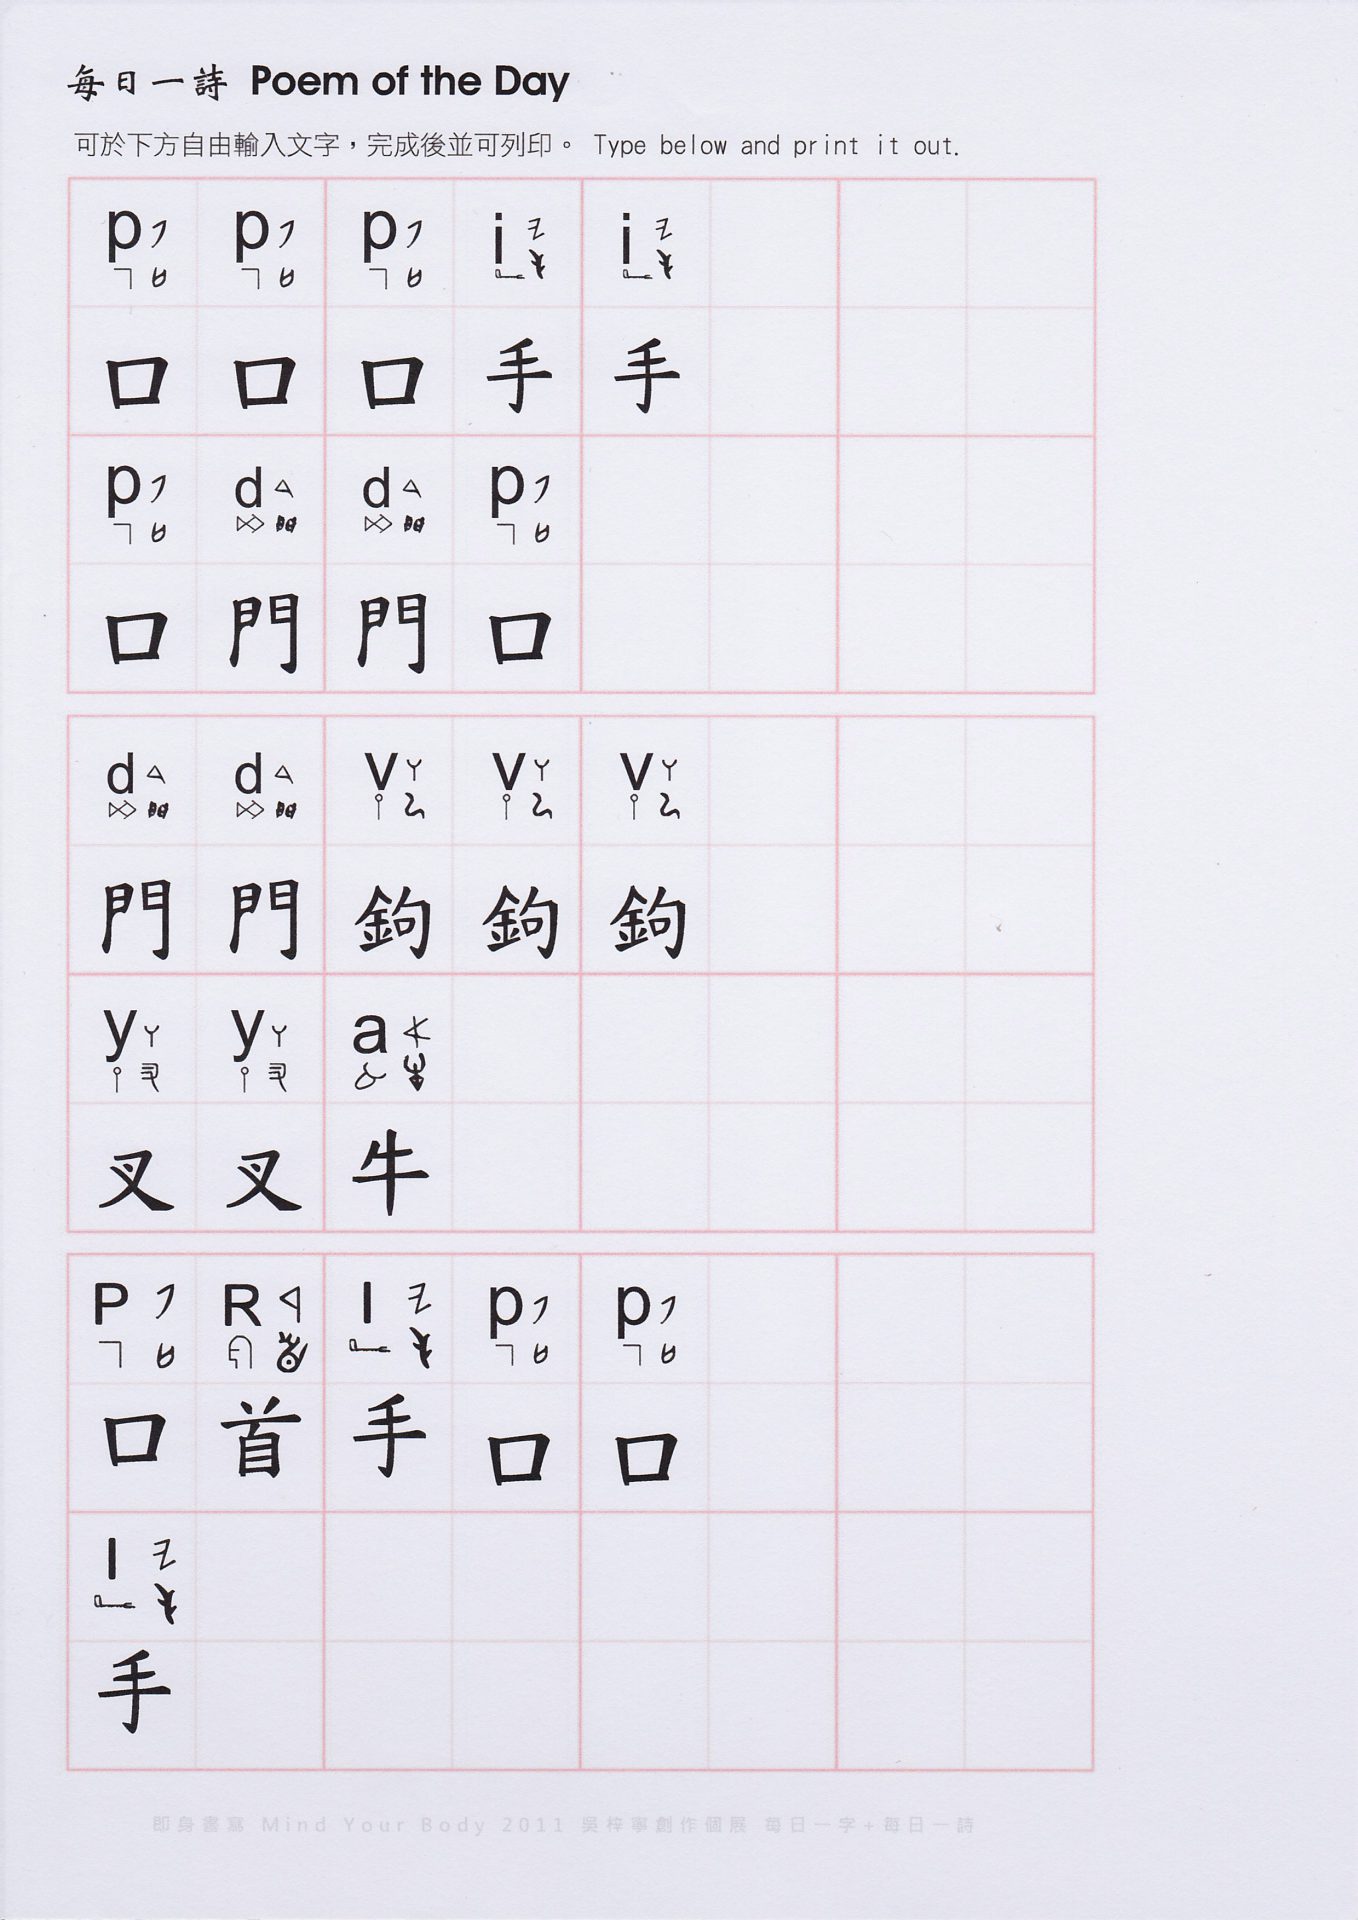 每日一詩 Poem of the Day
可於下方自由輸入文字，完成後並可列印。 Type below and print it out.
p p p i i
口 口 口 手 手
p d d p
口 門 門 口
d d v v v
門 門 鉤 鉤 鉤
y y a
叉 叉 牛
P R I p p
口 首 手 口 口
I
手
即身書寫 Mind Your Body 2011 吳梓寧創作個展 每日一字+每日一詩